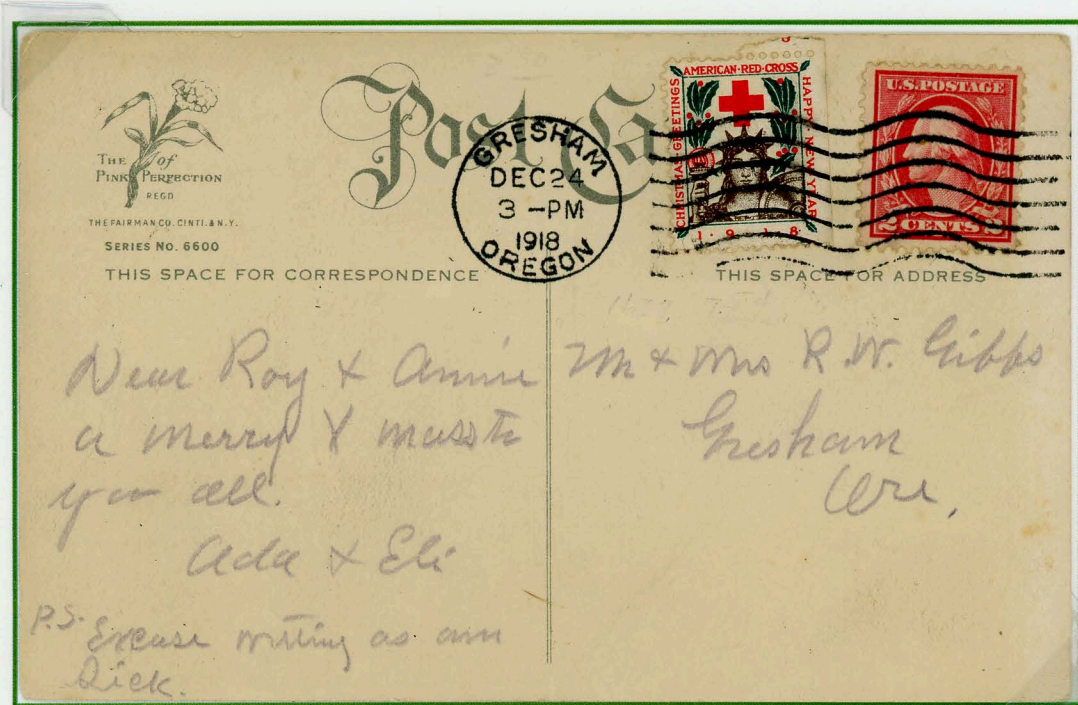 Post Ca
THE of
PINK PERFECTION
REGD
THE FAIRMAN CO. CINTI. & N.Y.
SERIES NO. 6600
GRESHAM
DEC 24
3 -PM
1918
OREGON
AMERICAN·RED·CROSS
CHRISTMAS GREETINGS
HAPPY NEW YEAR
1·9·1·8
U.S. POSTAGE
2 CENTS 2
THIS SPACE FOR CORRESPONDENCE
THIS SPACE FOR ADDRESS
Dear Roy & Annie
a merry Xmass to
you all.
Ada & Eli
P.S. Excuse writing as am
Sick.
Mr & Mrs R. W. Gibbs
Gresham
Ore.